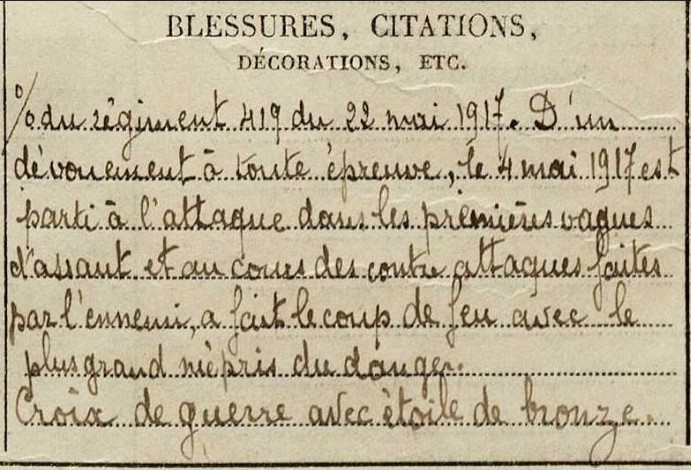 BLESSURES, CITATIONS,
DÉCORATIONS, ETC.
% du régiment 419 du 22 mai 1917. D'un
dévouement à toute épreuve, le 4 mai 1917 est
parti à l'attaque dans les premières vagues
d'assaut et au cours des contre attaques faites
par l'ennemi, a fait le coup de feu avec le
plus grand mépris du danger.
Croix de guerre avec étoile de bronze.